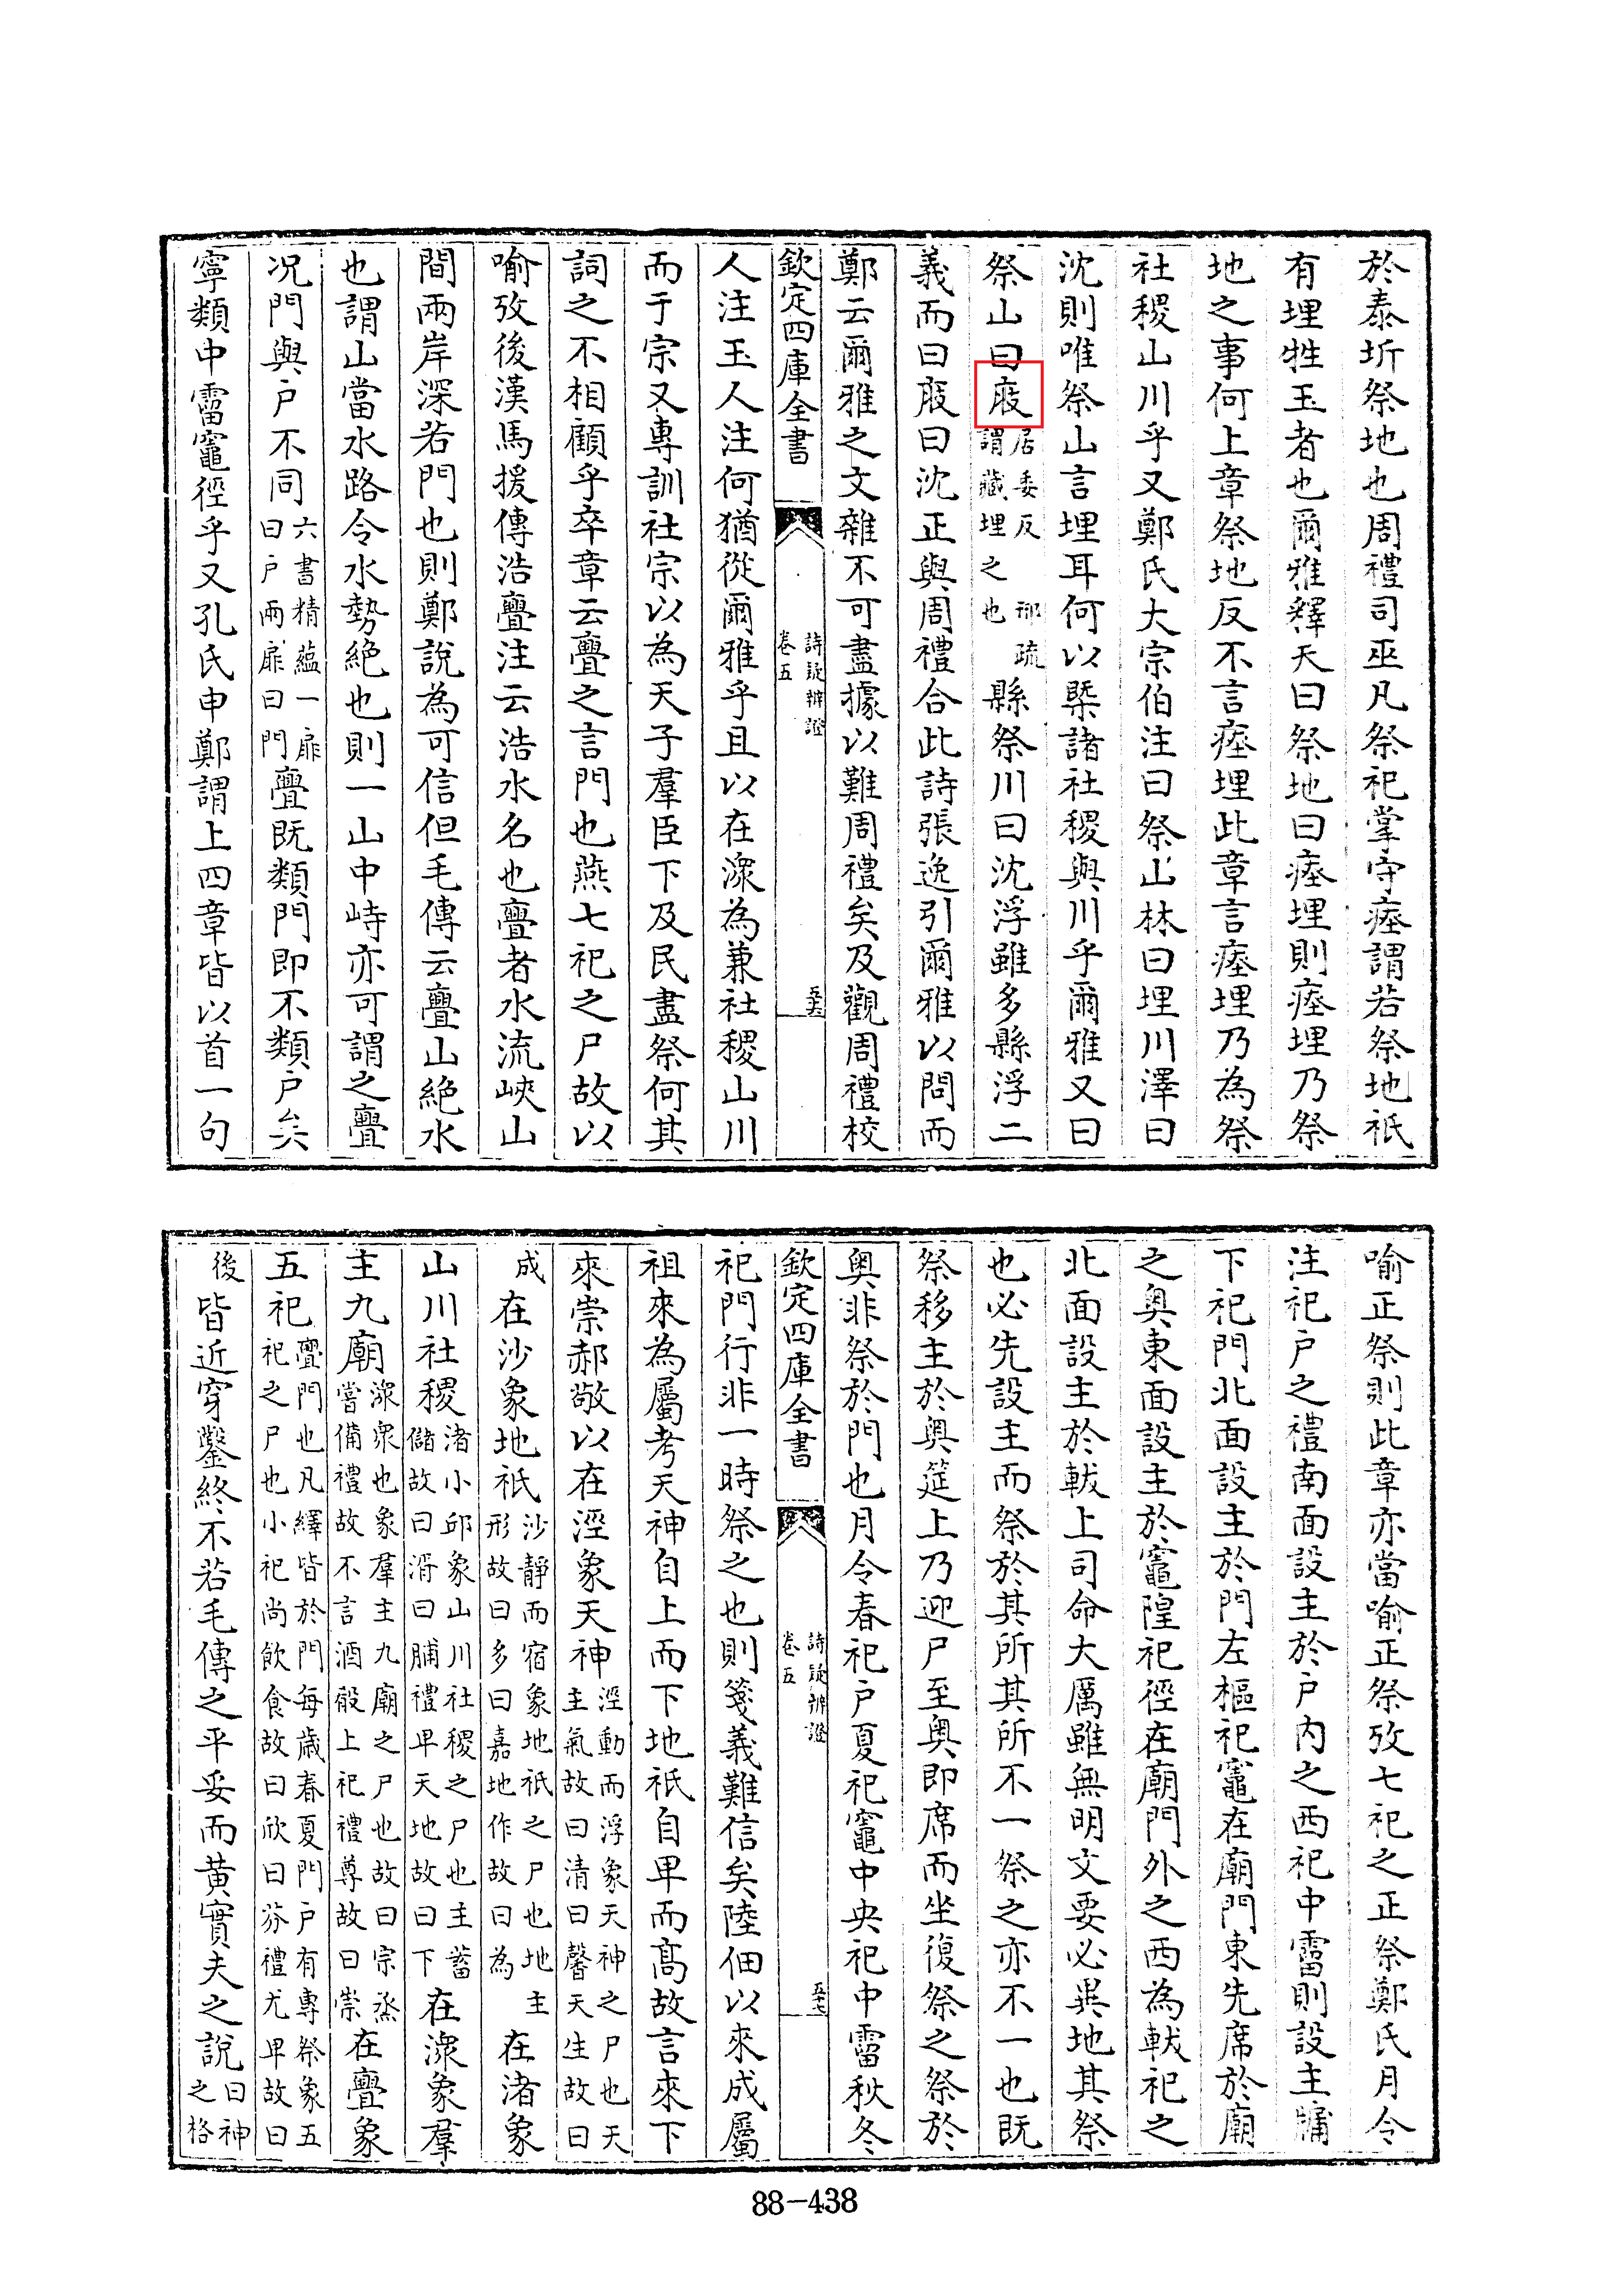 於泰圻祭地也周禮司巫凡祭祀掌守瘞謂若祭地祇
有埋牲玉者也爾雅釋天曰祭地曰瘞埋則瘞埋乃祭
地之事何上章祭地反不言瘞埋此章言瘞埋乃為祭
社稷山川乎又鄭氏大宗伯注曰祭山林曰埋川澤曰
沈則唯祭山言埋耳何以槩諸社稷與川乎爾雅又曰
祭山曰庪居委反邢疏謂藏埋之也縣祭川曰沈浮雖多縣浮二
義而曰庪曰沈正與周禮合此詩張逸引爾雅以問而
鄭云爾雅之文雜不可盡據以難周禮矣及觀周禮校
欽定四庫全書
詩疑辨證
卷五
五十六
人注玉人注何猶從爾雅乎且以在潀為兼社稷山川
而于宗又專訓社宗以為天子羣臣下及民盡祭何其
詞之不相顧乎卒章云亹之言門也燕七祀之尸故以
喻攷後漢馬援傳浩亹注云浩水名也亹者水流峽山
間兩岸深若門也則鄭說為可信但毛傳云亹山絶水
也謂山當水路令水勢絶也則一山中峙亦可謂之亹
况門與户不同六書精蘊一扉曰户兩扉曰門亹既類門即不類户矣
寧類中霤竈徑乎又孔氏申鄭謂上四章皆以首一句
喻正祭則此章亦當喻正祭攷七祀之正祭鄭氏月令
注祀户之禮南面設主於户内之西祀中霤則設主牖
下祀門北面設主於門左樞祀竈在廟門東先席於廟
之奥東面設主於竈陘祀徑在廟門外之西為軷祀之
北面設主於軷上司命大厲雖無明文要必異地其祭
也必先設主而祭於其所其所不一祭之亦不一也既
祭移主於奥筵上乃迎尸至奥即席而坐復祭之祭於
奥非祭於門也月令春祀户夏祀竈中央祀中霤秋冬
欽定四庫全書
詩疑辨證
卷五
五十七
祀門行非一時祭之也則箋義難信矣陸佃以來成屬
祖來為屬考天神自上而下地祇自卑而髙故言來下
來崇郝敬以在涇象天神涇動而浮象天神之尸也天主氣故曰清曰馨天生故曰
成在沙象地祇沙靜而宿象地祇之尸也地主形故曰多曰嘉地作故曰為在渚象
山川社稷渚小邱象山川社稷之尸也主蓄儲故曰湑曰脯禮卑天地故曰下在潀象羣
主九廟潀衆也象羣主九廟之尸也故曰宗烝嘗備禮故不言酒殽上祀禮尊故曰崇在亹象
五祀亹門也凡繹皆於門每歲春夏門户有專祭象五祀之尸也小祀尚飲食故曰欣曰芬禮尤卑故曰
後皆近穿鑿終不若毛傳之平妥而黄實夫之說曰神之格